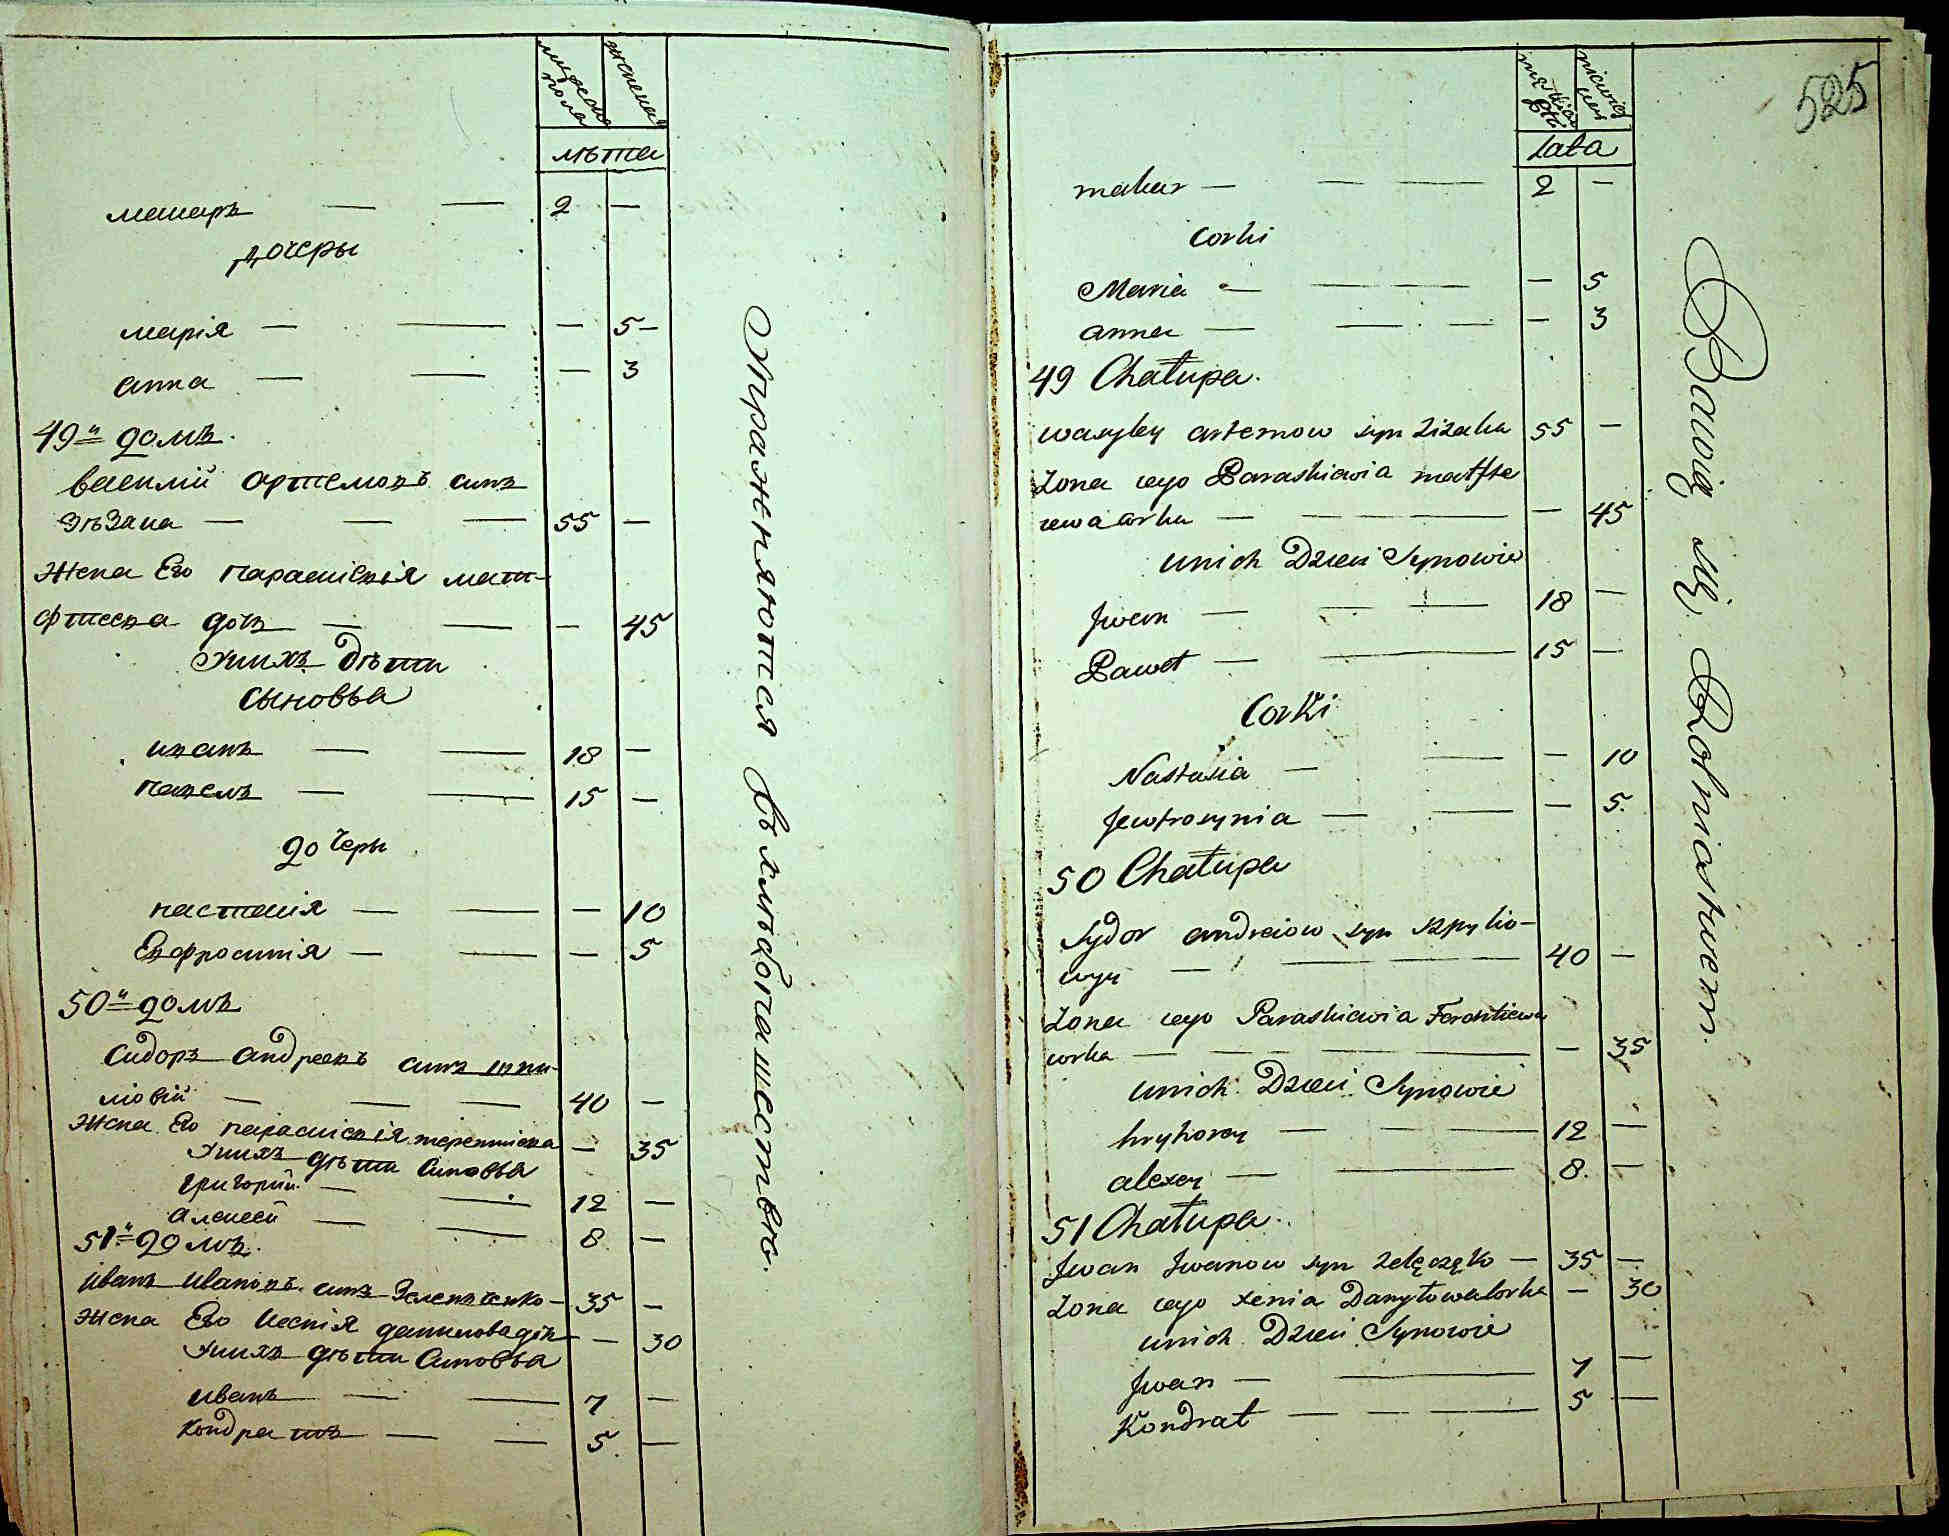 мужеска пола
женска
лѣта
макаръ — — — 2 —
Дочеры
марія — — — 5 —
анна — — — 3
49й домъ.
василий артемовъ синъ
зѣзака — — — 55 —
жена Его параскієвія мат-
фтеева дочъ — — — 45
У нихъ дѣти
сыновья
иванъ — — 18 —
павелъ — — 15 —
дочеры
настасія — — — 10
Евфросинія — — — 5
50й домъ
Сидоръ андреевъ синъ шпи-
ліовій — — — 40 —
жена Его параскієвія терентіева — 35
У нихъ дѣти Синовья
григорий — — 12 —
Алексей — — 8 —
51й домъ.
иванъ ивановъ синъ Зеленченко — 35 —
жена Его Ксенія данилова дочъ — 30
У нихъ дѣти Синовья
иванъ — — 7 —
кондратъ — — 5 —
Упражняются въ хлѣбопашествѣ.
525
lata
makar — — — 2 —
Corki
Maria — — — — 5
anna — — — — 3
49 Chałupa.
wasyley artemow syn Zizaka 55 —
Zona iego Paraskiewia matfte
iewa corka — — — — 45
u nich Dzieci Synowie
Jwan — — — 18 —
Paweł — — 15 —
Corki
Nastasia — — — 10
Jewfrosynia — — — 5.
50 Chałupa
Sydor andreiow syn szpylio-
wyy — — 40 —
Zona iego Paraskiewia Terentiewa
corka — — — — 35
u nich Dzieci Synowie
hryhorey — — — 12 —
alexey — — 8. —
51 Chałupa.
Jwan Jwanow syn zelęczęko — 35 —
Zona iego xenia Danyłowa Corka — 30
u nich Dzieci Synowie
Jwan — — 7 —
Kondrat — — — 5 —
Bawią się Rolniastwem.